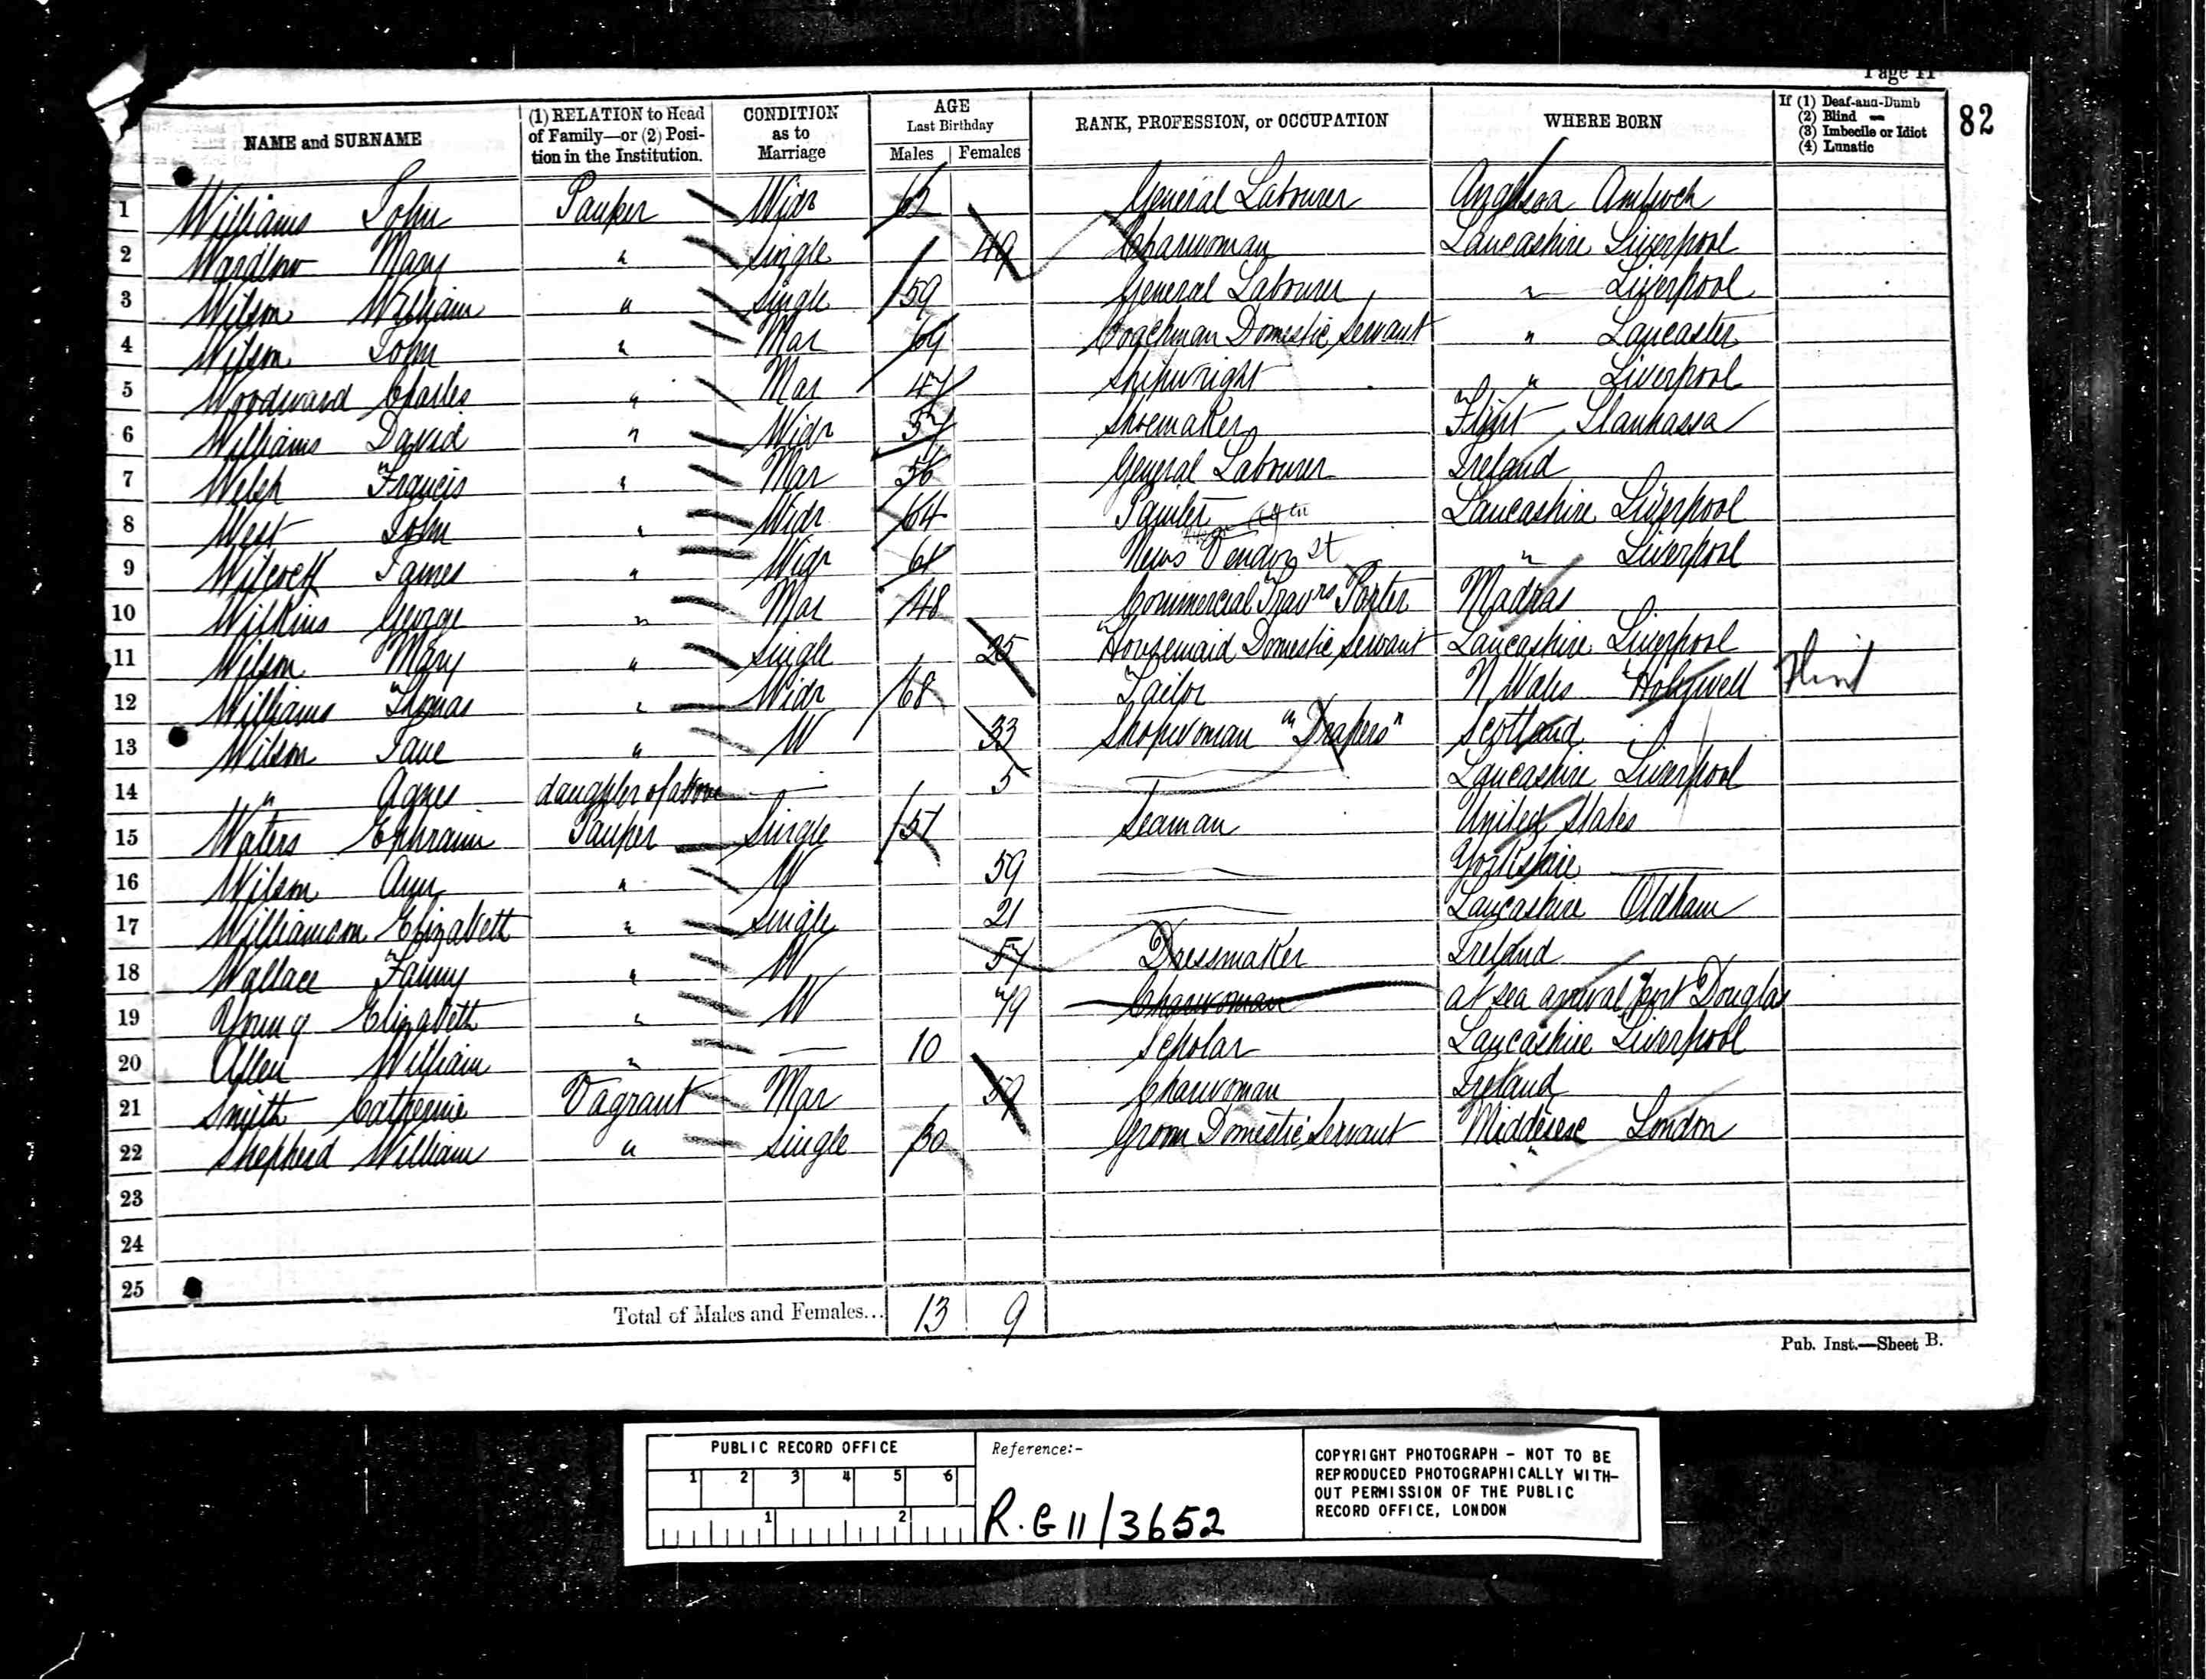 Page 11
82
NAME and SURNAME (1) RELATION to Head of Family—or (2) Position in the Institution. CONDITION as to Marriage AGE Last Birthday Males Females RANK, PROFESSION, or OCCUPATION WHERE BORN If (1) Deaf-and-Dumb (2) Blind (3) Imbecile or Idiot (4) Lunatic
1 Williams John Pauper Widr 62 General Labourer Anglesea Amlwch
2 Wardlow Mary " Single 49 Charwoman Lancashire Liverpool
3 Wilson William " Single 59 General Labourer " Liverpool
4 Wilson John " Mar 69 Coachman Domestic Servant " Lancaster
5 Woodward Charles " Mar 47 Shipwright " Liverpool
6 Williams David " Widr 57 Shoemaker Flint Llanhassa
7 Welsh Francis " Mar 56 General Labourer Ireland
8 West John " Widr 64 Painter Lancashire Liverpool
9 Wilcock James " Widr 61 News Vendor St " Liverpool
10 Wilkins George " Mar 48 Commercial Travrs Porter Madras
11 Wilson Mary " Single 25 Housemaid Domestic Servant Lancashire Liverpool
12 Williams Thomas " Widr 68 Tailor N Wales Holywell Flint
13 Wilson Jane " W 33 Shopwoman "Drapers" Scotland
14 " Agnes daughter of above — 5 — Lancashire Liverpool
15 Waters Ephraim Pauper Single 51 Seaman United States
16 Wilson Ann " W 59 — Yorkshire —
17 Williamson Elizabeth " Single 21 — Lancashire Oldham
18 Wallace Fanny " W 57 Dressmaker Ireland
19 Young Elizabeth " W 79 Charwoman at sea arrival port Douglas
20 Allen William " — 10 Scholar Lancashire Liverpool
21 Smith Catherine Vagrant Mar 59 Charwoman Ireland
22 Shepherd William " Single 30 Groom Domestic Servant Middesese London
23
24
25
Total of Males and Females... 13 9
Pub. Inst.—Sheet B.
PUBLIC RECORD OFFICE
1 2 3 4 5 6
1 2
Reference:-
R.G 11/3652
COPYRIGHT PHOTOGRAPH - NOT TO BE
REPRODUCED PHOTOGRAPHICALLY WITH-
OUT PERMISSION OF THE PUBLIC
RECORD OFFICE, LONDON